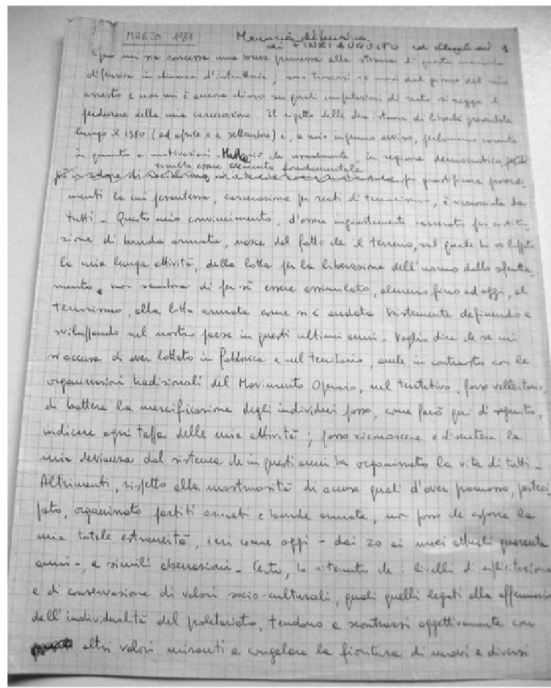 MARZO 1981 Memoria difensiva
di FINZI AUGUSTO ed allegati n° 1
mi sia concessa una breve premessa alla stesura di questa memoria
difensiva in chiave d'istruttoria; sono trascorsi mesi dal giorno del mio
arresto e non mi è ancora chiaro su quali imputazioni di reato si regge il
perdurare della mia carcerazione. Il rigetto delle due istanze di libertà presentate
lungo il 1980 (ad aprile e a settembre) è, a mio avviso,
in quanto a motivazioni in regime democratico,
essere elemento fondamentale
per giustificare
la mia carcerazione per reati di terrorismo, è riconosciuta da
tutti. Questo mio convincimento, d'essere ingiustamente carcerato per costitu-
zione di banda armata, nasce dal fatto che il terreno, sul quale ho sviluppato
la mia lunga attività, della lotta per la liberazione dell'uomo dallo sfrutta-
mento, non sembra di per sé essere assimilato, almeno fino ad oggi, al
terrorismo, alla lotta armata come si è andata tristemente definendo e
sviluppando nel nostro paese in questi ultimi anni. Voglio dire che se mi
si accusa di aver lottato in fabbrica e nel territorio, anche in contrasto con le
organizzazioni tradizionali del Movimento Operaio, nel tentativo, forse velleitario,
di battere la mercificazione degli individui posso, come farò qui di seguito,
indicare ogni tappa delle mie attività, posso riconoscere ed accettare la
mia devianza dal sistema che in questi anni ha organizzato la vita di tutti.
Altrimenti, rispetto alla mostruosità di accuse quali d'aver promosso, parteci-
pato, organizzato partiti armati e bande armate, non posso che esporre la
mia totale estraneità, ieri come oggi - dai 20 ai miei attuali quaranta
anni -, a simili aberrazioni. Certo, ho ritenuto che i livelli di esplicitazione
e di conservazione di valori socio-culturali, quali quelli legati alla affermazione
dell'individualità del proletariato, tendono a scontrarsi oggettivamente con
altri valori miranti a congelare la fioritura di nuovi e diversi